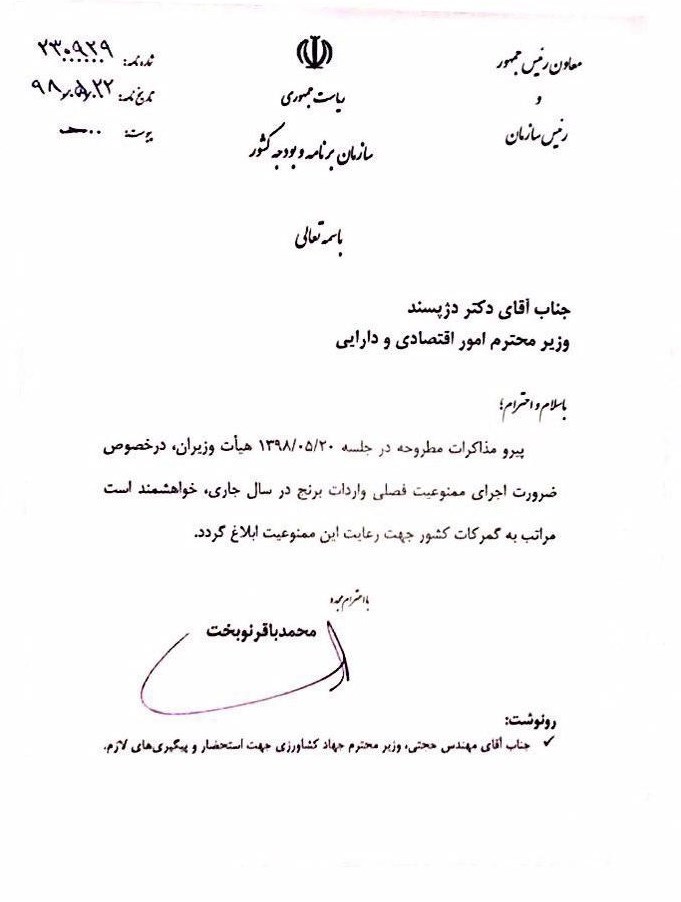 معاون رئیس جمهور
و
رئیس سازمان
ریاست جمهوری
سازمان برنامه و بودجه کشور
شماره نامه: ۲۳۰۹۲۹
تاریخ نامه: ۹۸/۰۵/۲۲
پیوست:
باسمه تعالی
جناب آقای دکتر دژپسند
وزیر محترم امور اقتصادی و دارایی
باسلام و احترام؛
پیرو مذاکرات مطروحه در جلسه ۱۳۹۸/۰۵/۲۰ هیأت وزیران، درخصوص
ضرورت اجرای ممنوعیت فصلی واردات برنج در سال جاری، خواهشمند است
مراتب به گمرکات کشور جهت رعایت این ممنوعیت ابلاغ گردد.
با احترام مجدد
محمدباقر نوبخت
رونوشت:
✓ جناب آقای مهندس حجتی، وزیر محترم جهاد کشاورزی جهت استحضار و پیگیری‌های لازم.